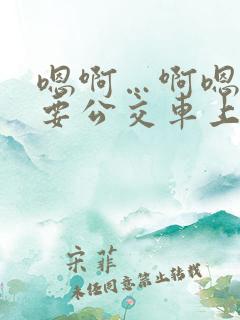 嗯啊…啊嗯
要公交车上
宋菲
未经同意禁止转载